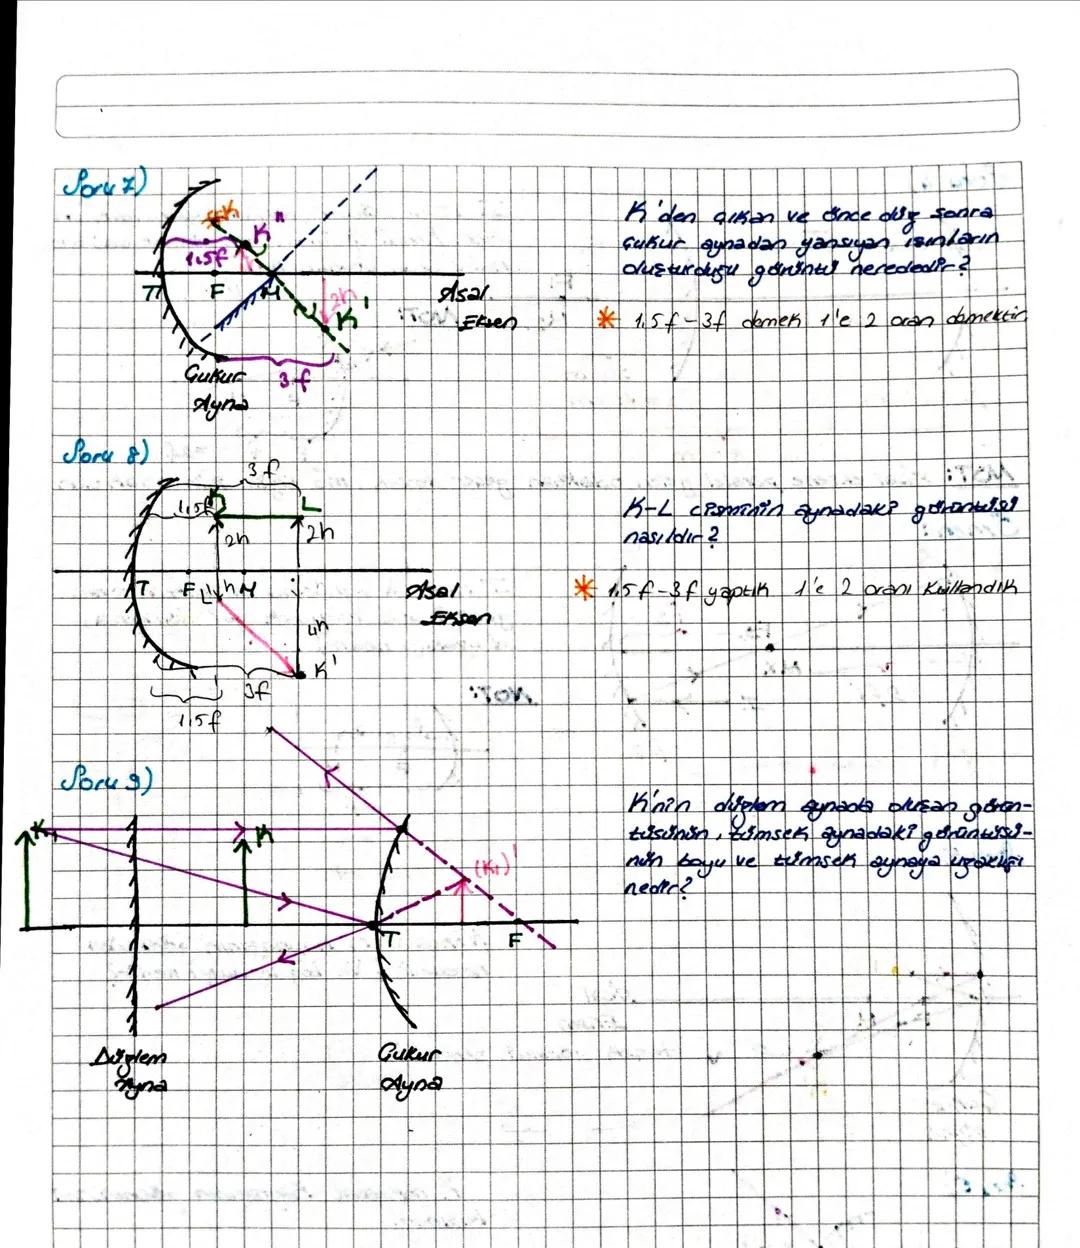 Soru 7)
K'den çıkan ve önce düz sonra
çukur aynadan yansıyan ışınların
oluşturduğu görüntü nerededir?
* 1.5f-3f demek 1'e 2 oran demektir
K
K''
1.5f
T F M
2h
K'
Asal
Eksen
3f
Çukur
Ayna
Soru 8)
3f
1,5f
L
2h 2h
K-L cisminin aynadaki görüntüsü
nasıldır?
T F L' h M
Asal
Eksen
* 1,5f-3f yaptık 1'e 2 oranı kullandık
4h
K'
3f
1,5f
NOT:
Soru 9)
K'nin düzlem aynada oluşan görün-
tüsünün, tümsek aynadaki görüntüsü-
nün boyu ve tümsek aynaya uzaklığı
nedir?
K₁ K
(K₁)'
T F
Düzlem
Ayna
Çukur
Ayna